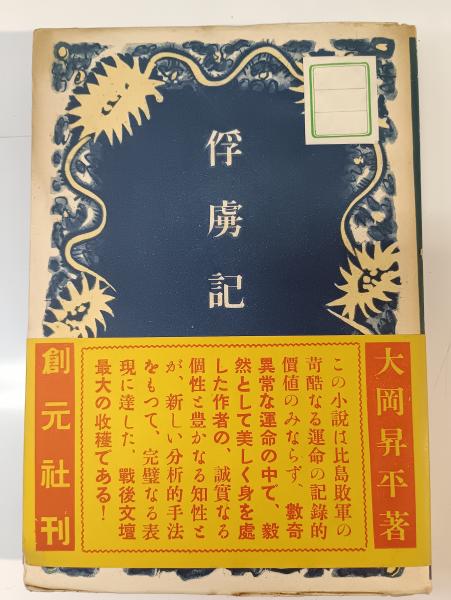 俘虜記
大岡昇平著
この小説は比島敗軍の
苛酷なる運命の記録的
價値のみならず、數奇
異常な運命の中で、毅
然として美しく身を處
した作者の、誠實なる
個性と豊かなる知性と
が、新しい分析的手法
をもつて、完璧なる表
現に達した、戰後文壇
最大の收穫である！
創元社刊